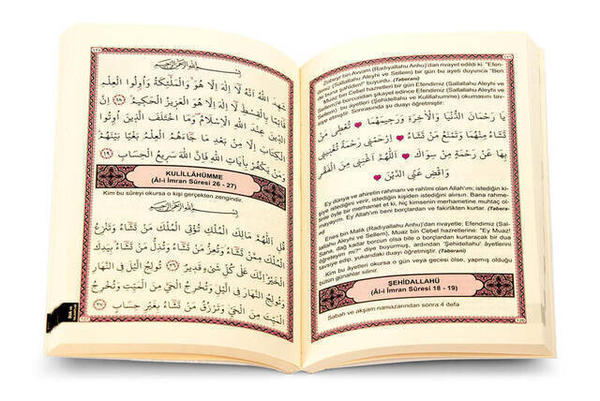 Zübeyr bin Avvam (Radıyallahu Anhu)'dan rivayet edildi ki: "Efendimiz (Sallallahu Aleyhi ve Sellem) bir gün bu ayeti duyunca "Ben
de buna şahidim" buyurdu. (Taberani)
Muaz bin Cebel hazretleri bir gün Efendimiz (Sallallahu Aleyhi ve
Sellem)'e borcundan şikayet edince Efendimiz (Sallallahu Aleyhi
ve Sellem) bu ayetleri (Şehidellahu ve Kulillahumme) okumasını tavsiye etmiş. Sonrasında şu duayı öğretmiştir:
يَا رَحْمَانَ الدُّنْيَا وَالْآخِرَةِ وَرَحِيمَهُمَا تُعْطِي مَنْ
تَشَاءُ مِنْهُمَا وَتَمْنَعُ مَنْ تَشَاءُ اِرْحَمْنِي رَحْمَةً تُغْنِينِي
بِهَا عَنْ رَحْمَةِ مَنْ سِوَاكَ اَللّٰهُمَّ اَغْنِنِي مِنَ الْفَقْرِ
وَاقْضِ عَنِّي الدَّيْنَ
Ey dünya ve ahiretin rahmanı ve rahîmi olan Allah'ım; istediğin kişiye
verir, istediğin kişiden alırsın. Bana rahmetinle
öyle bir merhamet et ki, hiç kimsenin merhametine muhtaç olmayayım.
Allah'ım! Beni borçlardan ve fakirlikten kurtar.
Enes bin Malik (Radıyallahu Anhu)'dan rivayetle; Efendimiz (Sallallahu
Aleyhi ve Sellem), Muaz bin Cebel hazretlerine: "Ey Muaz!
Sana, dağ kadar borcun olsa bile o borçlardan kurtaracak bir dua
öğreteyim mi?" diye buyurmuş, ardından 'Şehidellahu' âyetlerini
tavsiye edip, yukarıdaki duayı öğretmiştir. (Taberani)
Kim bu âyetleri okursa o gün veya gecesi ölse, yapmış olduğu
bütün günahlar silinir.
ŞEHİDALLAHÜ
(Âl-i İmran Sûresi 18 - 19)
Sabah ve akşam namazından sonra 4 defa
بِسْمِ اللّٰهِ الرَّحْمٰنِ الرَّحِيمِ
شَهِدَ اللّٰهُ اَنَّهُ لَا اِلٰهَ اِلَّا هُوَ وَالْمَلٰٓئِكَةُ وَاُولُوا الْعِلْمِ
قَائِمًا بِالْقِسْطِ لَا اِلٰهَ اِلَّا هُوَ الْعَزِيزُ الْحَكِيمُ ﴿١٨﴾ اِنَّ
الدِّينَ عِنْدَ اللّٰهِ الْاِسْلَامُ وَمَا اخْتَلَفَ الَّذِينَ اُوتُوا
الْكِتَابَ اِلَّا مِنْ بَعْدِ مَا جَاءَهُمُ الْعِلْمُ بَغْيًا بَيْنَهُمْ
وَمَنْ يَكْفُرْ بِاٰيَاتِ اللّٰهِ فَاِنَّ اللّٰهَ سَرِيعُ الْحِسَابِ ﴿١٩﴾
KULİLLÂHÜMME
(Âl-i İmran Sûresi 26 - 27)
Kim bu sûreyi okursa o kişi gerçekten zengindir.
بِسْمِ اللّٰهِ الرَّحْمٰنِ الرَّحِيمِ
قُلِ اللّٰهُمَّ مَالِكَ الْمُلْكِ تُؤْتِي الْمُلْكَ مَنْ تَشَاءُ وَتَنْزِعُ
الْمُلْكَ مِمَّنْ تَشَاءُ وَتُعِزُّ مَنْ تَشَاءُ وَتُذِلُّ مَنْ تَشَاءُ بِيَدِكَ
الْخَيْرُ اِنَّكَ عَلٰى كُلِّ شَيْءٍ قَدِيرٌ ﴿٢٦﴾ تُولِجُ الَّيْلَ فِي
النَّهَارِ وَتُولِجُ النَّهَارَ فِي الَّيْلِ وَتُخْرِجُ الْحَيَّ مِنَ
الْمَيِّتِ وَتُخْرِجُ الْمَيِّتَ مِنَ الْحَيِّ وَتَرْزُقُ مَنْ تَشَاءُ بِغَيْرِ حِسَابٍ ﴿٢٧﴾